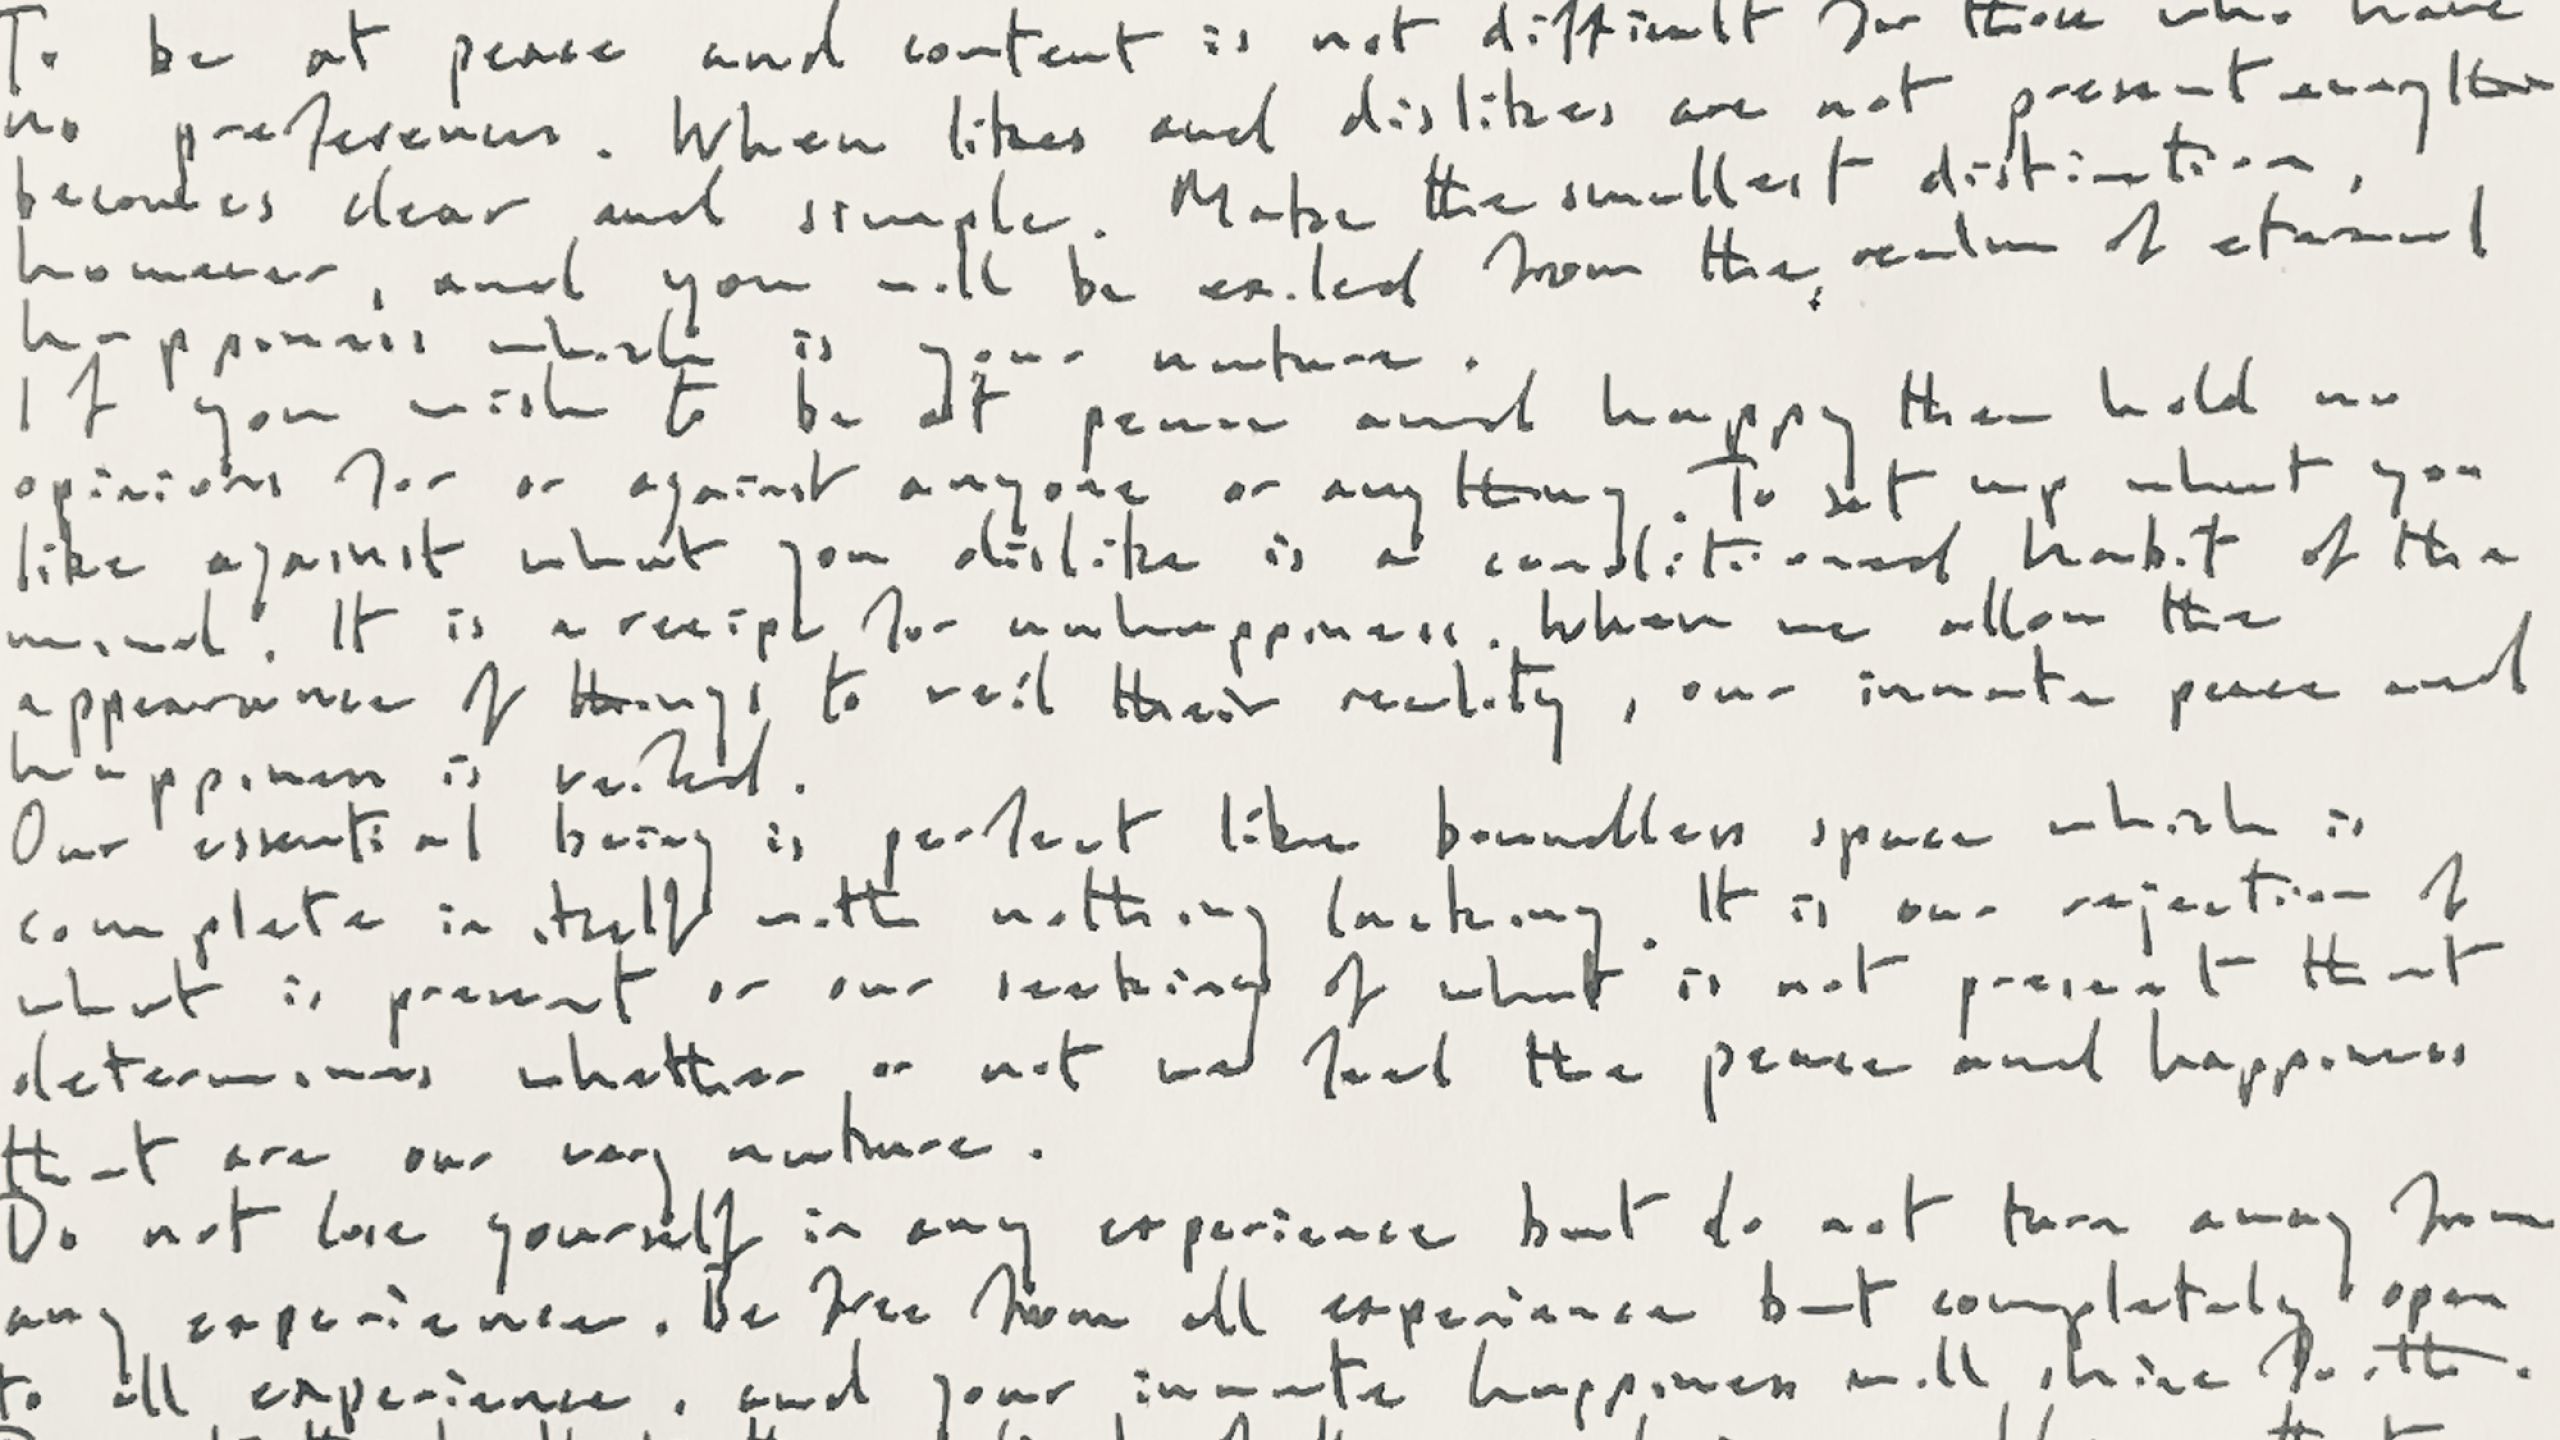 To be at peace and content is not difficult for those who have
no preferences. When likes and dislikes are not present everything
becomes clear and simple. Make the smallest distinction,
however, and you will be exiled from the realm of eternal
happiness which is your nature.
If you wish to be at peace and happy then hold no
opinions for or against anyone or anything. To set up what you
like against what you dislike is a conditioned habit of the
mind. It is a recipe for unhappiness. When we allow the
appearance of things to veil their reality, our innate peace and
happiness is veiled.
Our essential being is perfect like boundless space which is
complete in itself with nothing lacking. It is our rejection of
what is present or our seeking of what is not present that
determines whether or not we feel the peace and happiness
that are our very nature.
Do not lose yourself in any experience but do not turn away from
any experience. Be free from all experience but completely open
to all experience, and your innate happiness will shine forth.